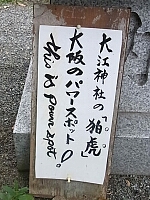 大江神社の「狛虎」
大阪のパワースポット。
This is Power spot.